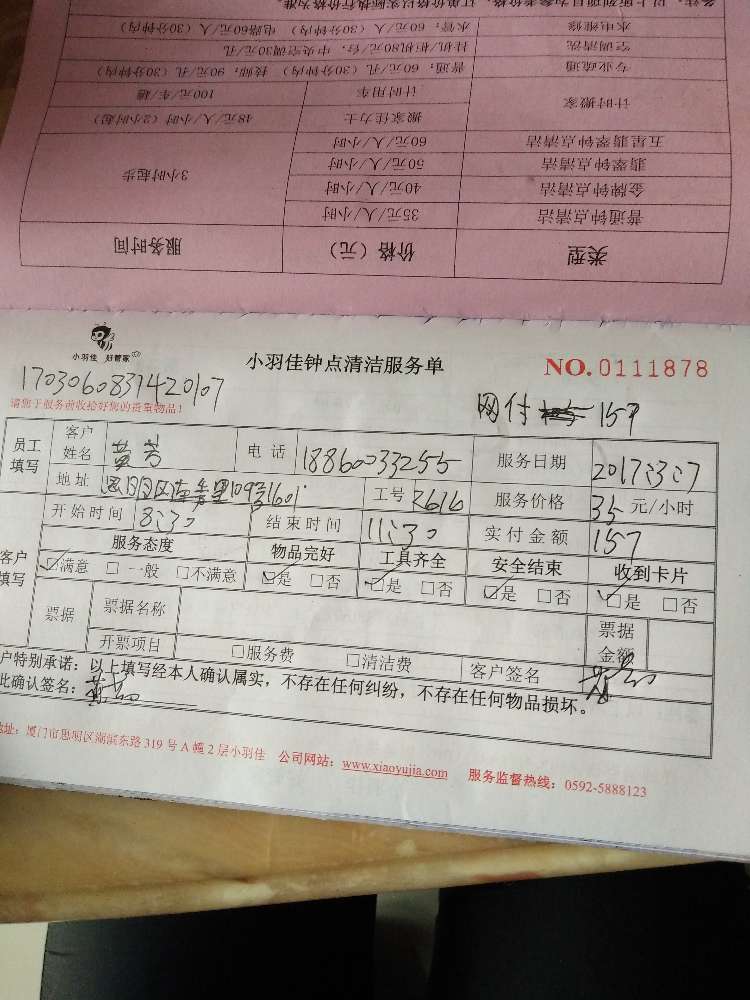 类型 价格（元） 服务时间
普通钟点清洁 35元/人/小时 3小时起步
金牌钟点清洁 40元/人/小时
翡翠钟点清洁 50元/人/小时
五星翡翠钟点清洁 60元/人/小时
计时搬家 搬家佳力士 48元/人/小时（2小时起）
计时用车 100元/车/趟
专业疏通 普通：60元/孔（30分钟内） 技师：90元/孔（30分钟内）
空调清洗 挂机/柜机30元/台，中央空调30元/孔
水电维修 水管：60元/人（30分钟内） 电路60元/人（30分钟内）
小羽佳 好管家
小羽佳钟点清洁服务单 NO.0111878
17030608371420107
请您于服务前收拾好您的贵重物品！
网付 157
员工填写 客户姓名 黄芳 电话 18860033255 服务日期 2017:3:7
地址 思明区莲秀里109号1601 工号 2616 服务价格 35 元/小时
客户填写 开始时间 8:30 结束时间 11:30 实付金额 157
服务态度 物品完好 工具齐全 安全结束 收到卡片
☑满意 □一般 □不满意 ☑是 □否 ☑是 □否 ☑是 □否 ☑是 □否
票据 票据名称 票据金额
开票项目 □服务费 □清洁费 客户签名
户特别承诺：以上填写经本人确认属实，不存在任何纠纷，不存在任何物品损坏。
此确认签名：
地址：厦门市思明区湖滨东路319号A幢2层小羽佳 公司网站：www.xiaoyujia.com 服务监督热线：0592-5888123